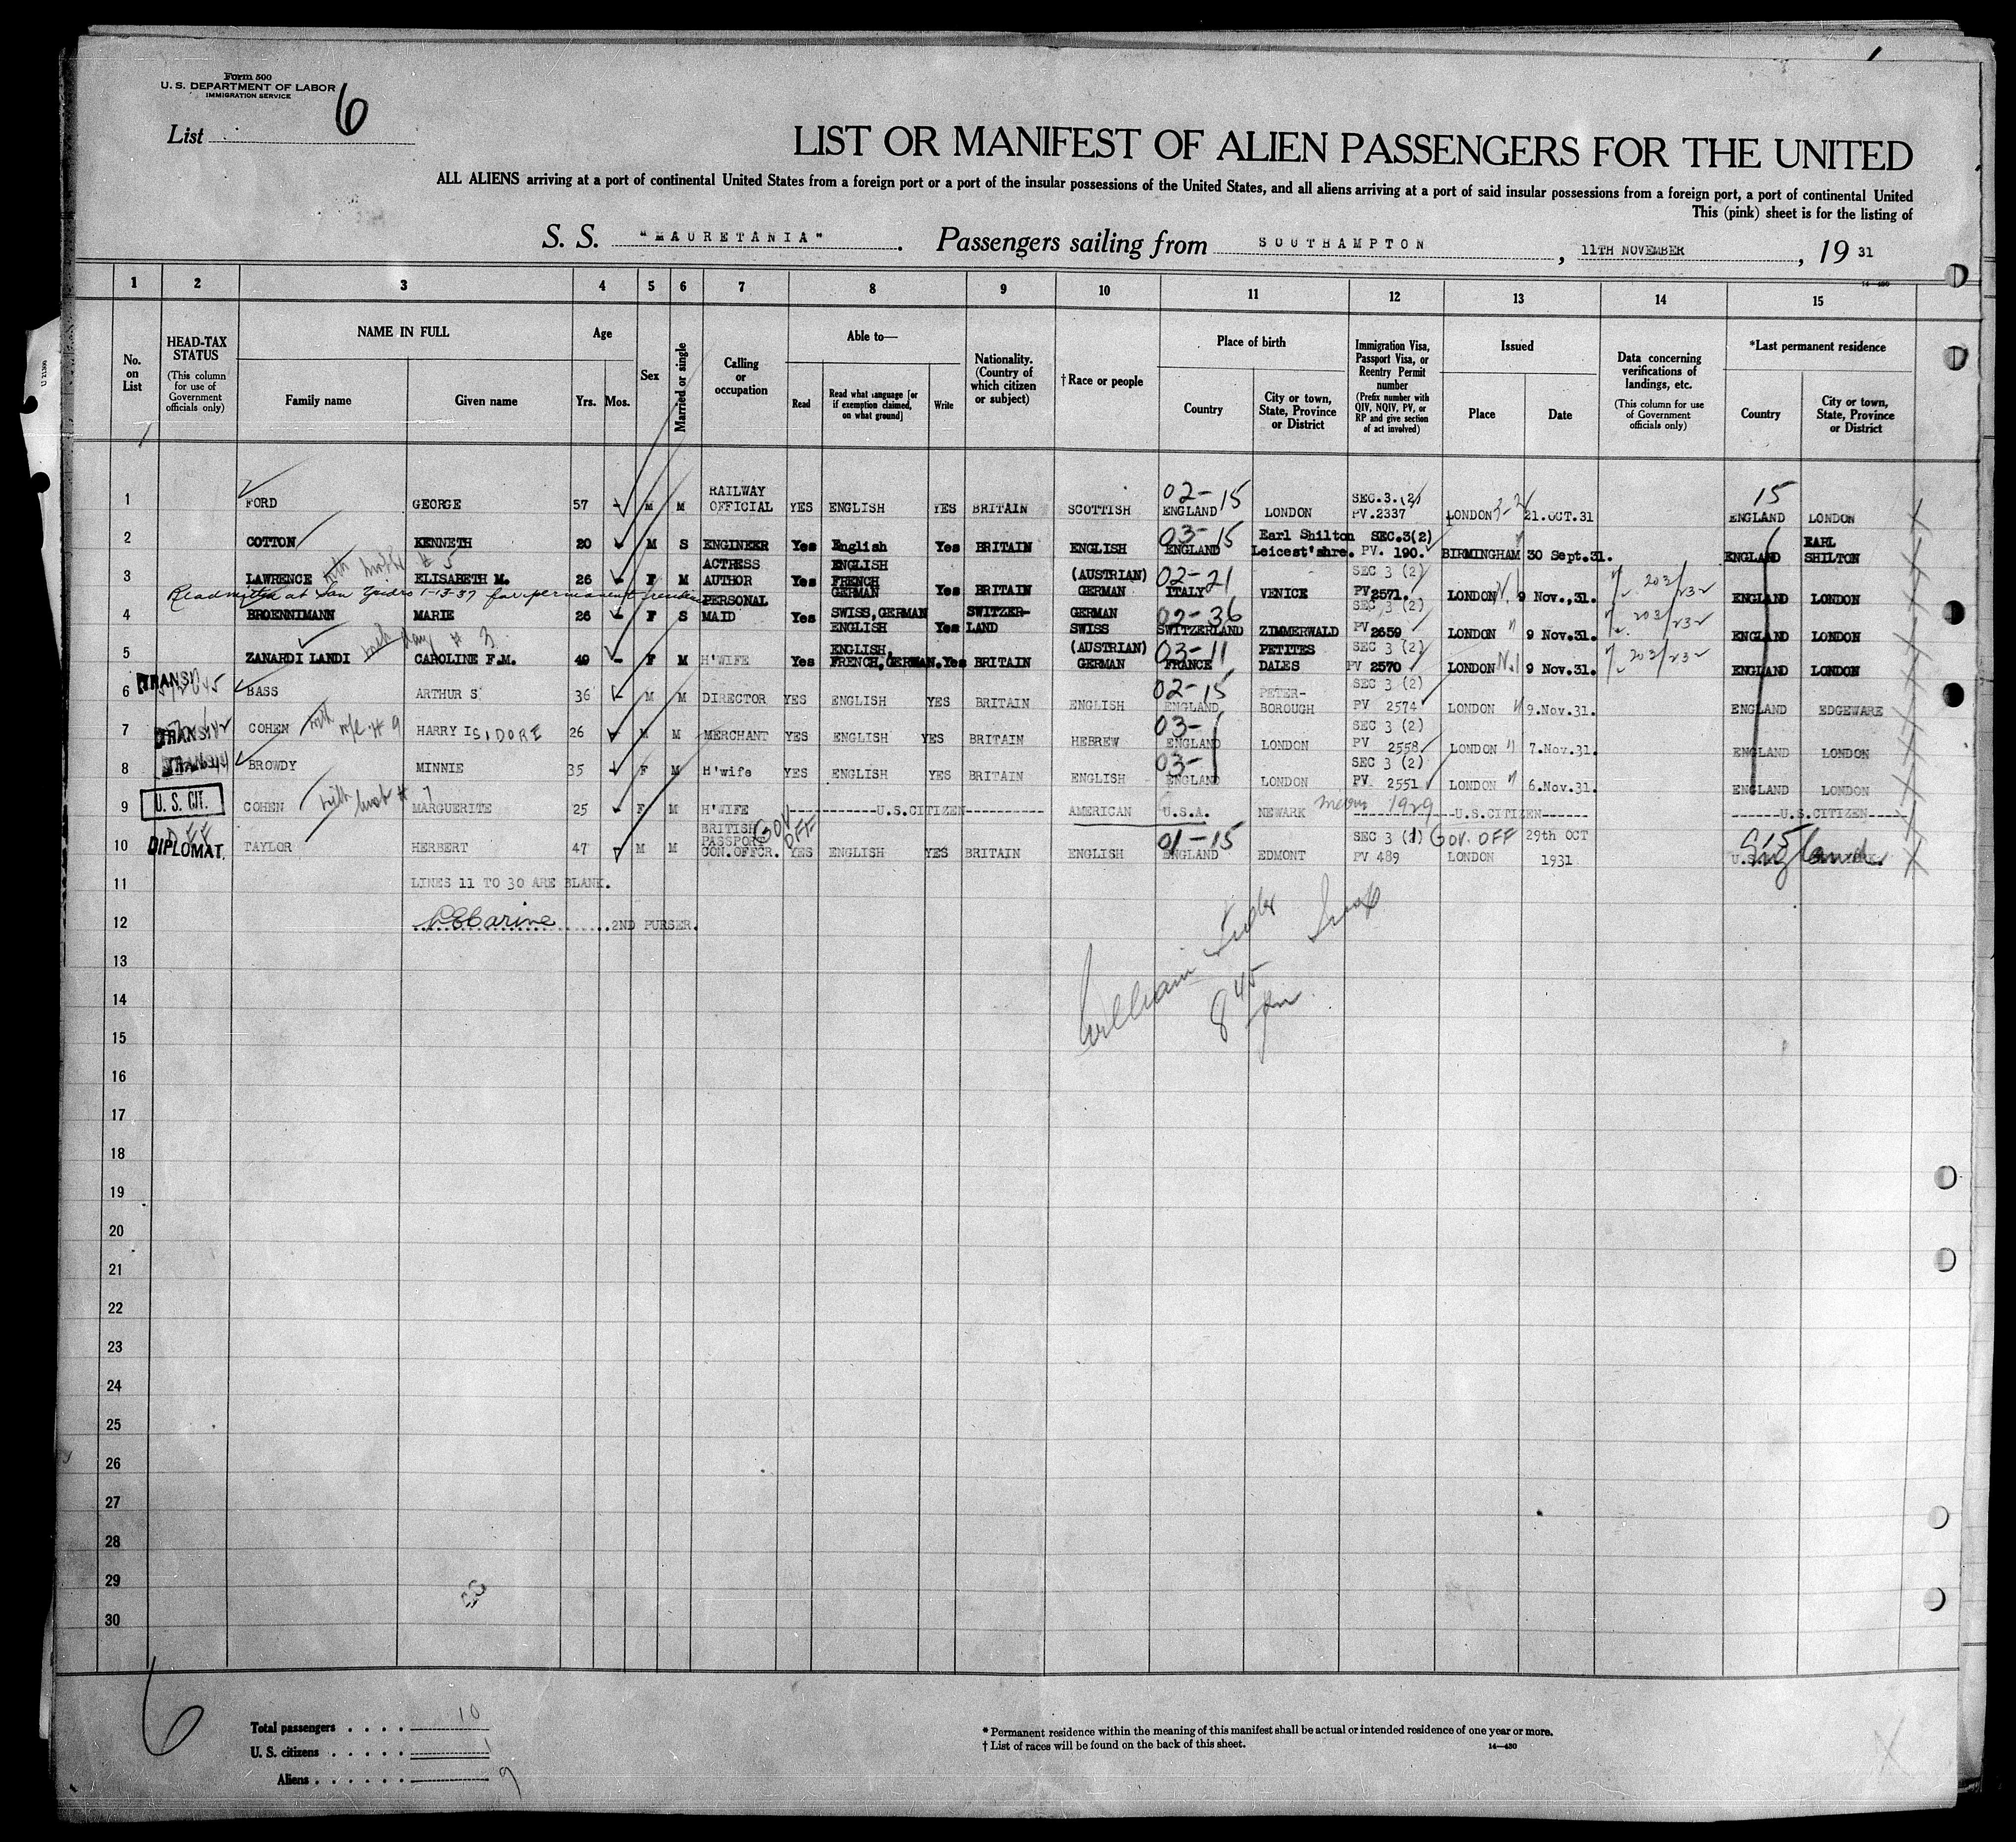 Form 500
U. S. DEPARTMENT OF LABOR
IMMIGRATION SERVICE
List 6
LIST OR MANIFEST OF ALIEN PASSENGERS FOR THE UNITED
ALL ALIENS arriving at a port of continental United States from a foreign port or a port of the insular possessions of the United States, and all aliens arriving at a port of said insular possessions from a foreign port, a port of continental United
This (pink) sheet is for the listing of
S. S. "MAURETANIA". Passengers sailing from SOUTHAMPTON, 11TH NOVEMBER, 19 31
14—480
1 2 3 4 5 6 7 8 9 10 11 12 13 14 15
No. on List
HEAD-TAX STATUS (This column for use of Government officials only)
NAME IN FULL Family name Given name
Age Yrs. Mos.
Sex
Married or single
Calling or occupation
Able to— Read Read what language [or if exemption claimed, on what ground] Write
Nationality. (Country of which citizen or subject)
†Race or people
Place of birth Country City or town, State, Province or District
Immigration Visa, Passport Visa, or Reentry Permit number (Prefix number with QIV, NQIV, PV, or RP and give section of act involved)
Issued Place Date
Data concerning verifications of landings, etc. (This column for use of Government officials only)
*Last permanent residence Country City or town, State, Province or District
1 FORD GEORGE 57 - M M RAILWAY OFFICIAL YES ENGLISH YES BRITAIN SCOTTISH 02-15 ENGLAND LONDON SEC.3.(2) PV.2337 LONDON 21.OCT.31 15 ENGLAND LONDON
2 COTTON KENNETH 20 - M S ENGINEER Yes English Yes BRITAIN ENGLISH 03-15 ENGLAND Earl Shilton Leicest'shre. SEC.3(2) PV. 190. BIRMINGHAM 30 Sept.31. ENGLAND EARL SHILTON
3 LAWRENCE with mother # 5 ELISABETH M. 26 - F M ACTRESS AUTHOR Yes ENGLISH FRENCH GERMAN Yes BRITAIN (AUSTRIAN) GERMAN 02-21 ITALY VENICE SEC 3 (2) PV 2571. LONDON 9 Nov.,31. 203/232 ENGLAND LONDON
Readmitted at San Ysidro 1-13-37 for permanent residence
4 BROENNIMANN MARIE 26 - F S PERSONAL MAID Yes SWISS, GERMAN ENGLISH Yes SWITZER-LAND GERMAN SWISS 02-36 SWITZERLAND ZIMMERWALD SEC 3 (2) PV 2659 LONDON 9 Nov.31. 203/232 ENGLAND LONDON
5 ZANARDI LANDI with dau # 3 CAROLINE F.M. 49 - F M H'WIFE Yes ENGLISH, FRENCH, GERMAN. Yes BRITAIN (AUSTRIAN) GERMAN 03-11 FRANCE PETITES DALES SEC 3 (2) PV 2570 LONDON 9 Nov.31. 203/232 ENGLAND LONDON
6 TRANSIT BASS ARTHUR S 36 - M M DIRECTOR YES ENGLISH YES BRITAIN ENGLISH 02-15 ENGLAND PETER-BOROUGH SEC 3 (2) PV 2574 LONDON 9.Nov.31. ENGLAND EDGEWARE
7 TRANSIT COHEN with w/e # 9 HARRY ISIDORE 26 - M M MERCHANT YES ENGLISH YES BRITAIN HEBREW 03- ENGLAND LONDON SEC 3 (2) PV 2558 LONDON 7.Nov.31. ENGLAND LONDON
8 TRANSIT BROWDY MINNIE 35 - F M H'wife YES ENGLISH YES BRITAIN ENGLISH 03- ENGLAND LONDON SEC 3 (2) PV 2551 LONDON 6.Nov.31. ENGLAND LONDON
9 U. S. CIT. COHEN with husb # 7 MARGUERITE 25 - F M H'WIFE ----------U.S.CITIZEN---------- AMERICAN U.S.A. NEWARK 1929 ----U.S.CITIZEN---- ------U.S.CITIZEN----
10 DIPLOMAT. TAYLOR HERBERT 47 - M M BRITISH PASSPORT CON.OFFCR. GOV OFF YES ENGLISH YES BRITAIN ENGLISH 01-15 ENGLAND EDMONT SEC 3 (1) PV 489 GOV. OFF LONDON 29th OCT 1931 England
11 LINES 11 TO 30 ARE BLANK.
12 2ND PURSER.
William
8 45 pm
13
14
15
16
17
18
19
20
21
22
23
24
25
26
27
28
29
30
6
Total passengers . . . . 10
U. S. citizens . . . . . 1
Aliens . . . . . . 9
* Permanent residence within the meaning of this manifest shall be actual or intended residence of one year or more.
† List of races will be found on the back of this sheet.
14—480